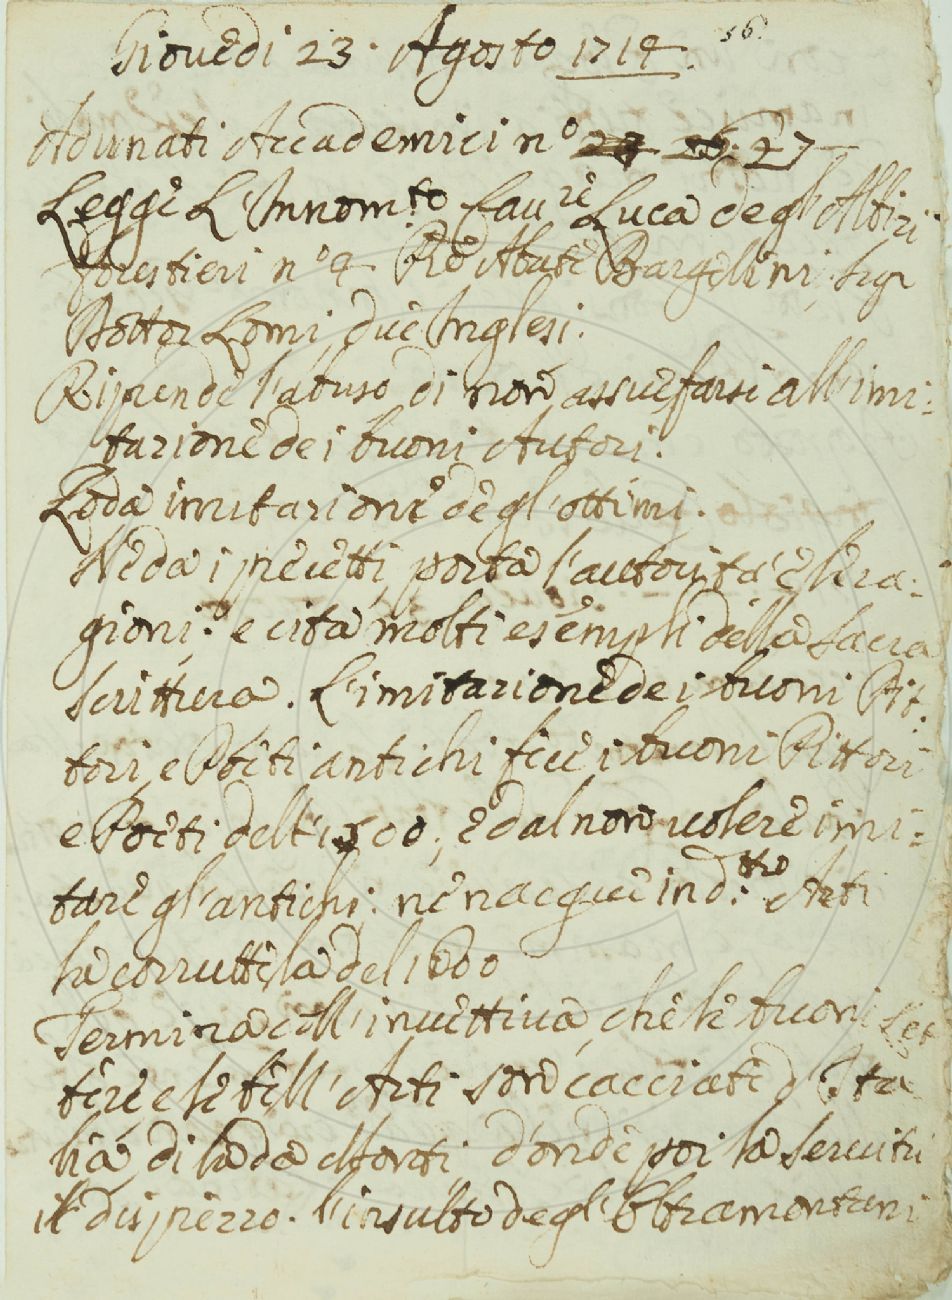 Giovedi 23. Agosto 1714. 56.
Adunati Accademici n.o 27
Legge L'Innom.to Lau.re Luca degl'Albizi
forestieri n.o 4 Re Abate Bargellini, Sigr
Dottor Lomi, due Inglesi.
Riprende l'abuso di non assuefarsi all'imi:
tazione dei buoni Autori.
Loda imitazione degl'ottimi.
Ne da i precetti, porta l'autorita e le ra:
gioni: e cita molti esempli della Sacra
Scrittura. L'imitazione dei buoni Pit:
tori, e Poeti antichi fece i buoni Pittori
e Poeti dell'1500; e dal non volere imi:
tare gl'antichi: ne nacque in d.tte Arti
la corruttela del 1600
Termina coll'invettiva, che le buone Let
tere e le bell'Arti sono cacciati d'Ita
lia di la da Monti d'onde poi la servitu
il dispiezzo. l'insulto degl'Oltramontani